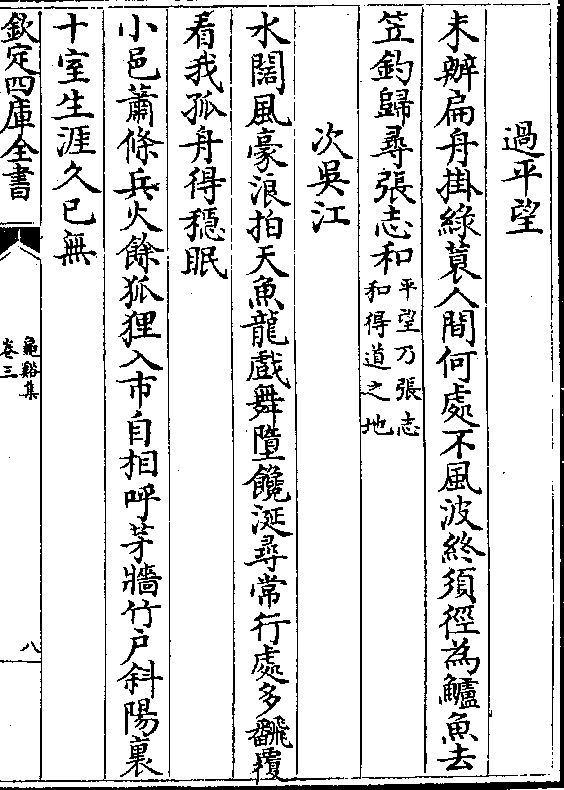 過平望
未辦扁舟掛綠蓑人間何處不風波終須徑為鱸魚去
笠釣歸尋張志和平望乃張志
和得道之地
次吳江
水闊風豪浪拍天魚龍戲舞墮饞涎尋常行處多飜覆
看我孤舟得穩眠
小邑蕭條兵火餘狐狸入市自相呼茅牆竹戶斜陽裏
十室生涯久已無
欽定四庫全書
龜谿集
卷三
八